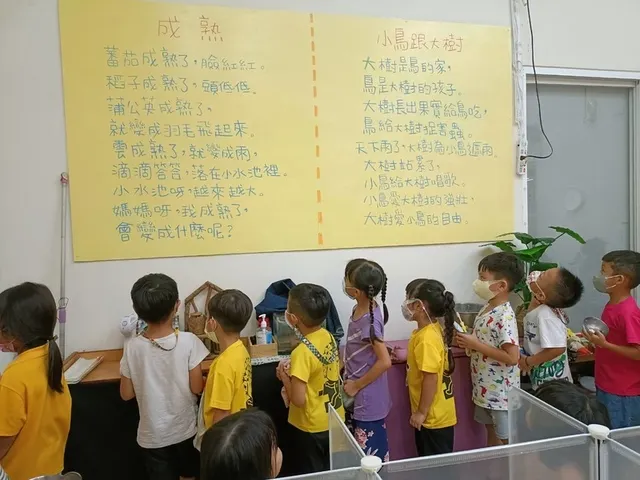 成熟
蕃茄成熟了，臉紅紅。
稻子成熟了，頭低低。
蒲公英成熟了，
就變成羽毛飛起來。
雲成熟了，就變成雨，
滴滴答答，落在小水池裡。
小水池呀，越來越大。
媽媽呀，我成熟了，
會變成什麼呢？
小鳥跟大樹
大樹是鳥的家，
鳥是大樹的孩子。
大樹長出果實給鳥吃，
鳥給大樹捉害蟲。
天下雨了，大樹為小鳥遮雨。
大樹站累了，
小鳥給大樹唱歌。
小鳥愛大樹的強壯，
大樹愛小鳥的自由。